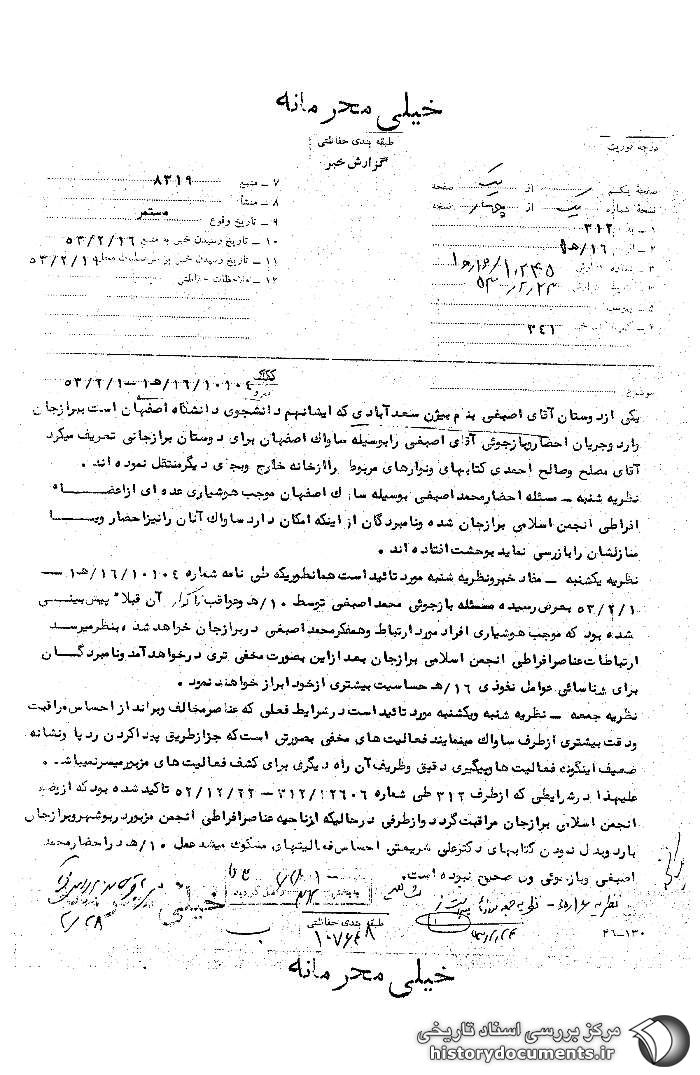 خیلی محرمانه
طبقه بندی حفاظتی
گزارش خبر
درجه فوریت
صفحهٔ یکم از یک صفحه
نسخهٔ شماره یک از چهار نسخه
۱ – به ۳۱۲
۲ – از ۱۶/هـ۱
۱۰۲۴۵/۱۶هـ۱
۵۳/۲/۲۳
۳۴۱
۷ – منبع ۸۳۱۹
۸ – منشأ
۹ – تاریخ وقوع مستمر
۱۰ – تاریخ رسیدن خبر به منبع ۵۳/۲/۱۶
۱۱ – تاریخ رسیدن خبر به ۵۳/۲/۱۹
۱۲ – ملاحظات
موضوع
پیرو ۱۰۱۰۴/۱۶/هـ۱ – ۵۳/۲/۱
یکی ازدوستان آقای اصیفی بنام بیژن سعدآبادی که ایشانهم دانشجوی دانشگاه اصفهان است ببرازجان
وارد وجریان احضاروبازجوئی آقای اصیفی رابوسیله ساواك اصفهان برای دوستان برازجانی تعریف میکرد
آقای مصلح وصالح احمدی کتابهای ونوارهای مربوط راازخانه خارج وبجای دیگرمنتقل نموده اند .
نظریه شنبه – مسئله احضارمحمداصیفی بوسیله ساواك اصفهان موجب هوشیاری عده ای ازاعضاء
افراطی انجمن اسلامی برازجان شده ونامبردگان از اینکه امکان دارد ساواك آنان رانیزاحضار ویا
منازلشان رابازرسی نماید بوحشت افتاده اند .
نظریه یکشنبه – مفاد خبرونظریه شنبه مورد تائید است همانطوریکه طی نامه شماره ۱۰۱۰۴/۱۶/هـ۱ –
۵۳/۲/۱ بعرض رسیده مسئله بازجوئی محمداصیفی توسط ۱۰/هـ وعواقب ناگوار آن قبلا" پیش بینی
شده بود که موجب هوشیاری افراد مورد ارتباط وهمفکرمحمداصیفی دربرازجان خواهد شد ، بنظرمیرسد
ارتباطات عناصرافراطی انجمن اسلامی برازجان بعد ازاین بصورت مخفی تری درخواهد آمد ونامبردگان
برای شناسائی عوامل نفوذی ۱۶/هـ حساسیت بیشتری ازخود ابراز خواهند نمود .
نظریه جمعه – نظریه شنبه ویکشنبه مورد تائید است درشرایط فعلی که عناصرمخالف وبرانداز احساس مراقبت
ودقت بیشتری ازطرف ساواك مینمایند فعالیت های مخفی بصورتی است که جزازطریق پیدا کردن رد پا ونشانه
ضعیف اینگونه فعالیت هاوپیگیری دقیق وظریف آن راه دیگری برای کشف فعالیت های مزبورمیسرنمیباشد .
علیهذا درشرایطی که ازطرف ۳۱۲ طی شماره ۳۱۲/۱۲۶۰۶ – ۵۲/۱۲/۲۲ تاکید شده بود که ازوضع
انجمن اسلامی برازجان مراقبت گردد وازطرفی درحالیکه ازناحیه عناصرافراطی انجمن مزبوردربوشهروبرازجان
بارد وبدل نمودن کتابهای دکترعلی شریعتی احساس فعالیتهای مشکوك میشد عمل ۱۰/هـ دراحضارمحمد
اصیفی وبازجوئی وی صحیح نبوده است .
نظریه ۱۶/هـ۱ –
به بخش ۳۱۲
طبقه بندی حفاظتی
۱۰۷۶۴۸
۲/۲۸
۴۶–۱۳۰
خیلی
خیلی محرمانه
مرکز بررسی اسناد تاریخی
historydocuments.ir